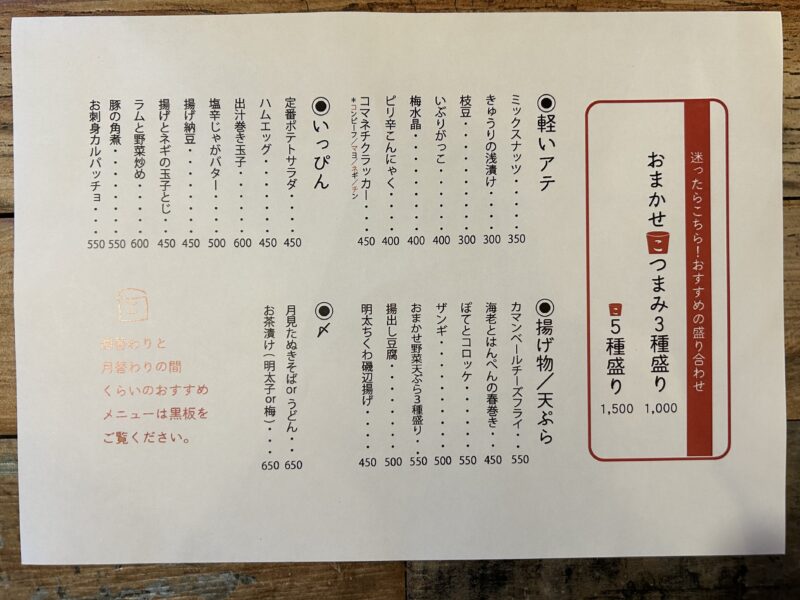 迷ったらこちら！おすすめの盛り合わせ
おまかせこつまみ3種盛り 1,000
こ5種盛り 1,500
◉軽いアテ
ミックスナッツ・・・・・350
きゅうりの浅漬け・・・・300
枝豆・・・・・・・・・・300
いぶりがっこ・・・・・・400
梅水晶・・・・・・・・・400
ピリ辛こんにゃく・・・・400
コマネチクラッカー・・・450
*コンビーフ／マヨ／ネギ／チン
◉揚げ物／天ぷら
カマンベールチーズフライ・・550
海老とはんぺんの春巻き・・・450
ぽてとコロッケ・・・・・・・550
ザンギ・・・・・・・・・・・500
おまかせ野菜天ぷら3種盛り・・550
揚出し豆腐・・・・・・・・・500
明太ちくわ磯辺揚げ・・・・・450
◉いっぴん
定番ポテトサラダ・・・・450
ハムエッグ・・・・・・・450
出汁巻き玉子・・・・・・600
塩辛じゃがバター・・・・500
揚げ納豆・・・・・・・・450
揚げとネギの玉子とじ・・450
ラムと野菜炒め・・・・・600
豚の角煮・・・・・・・・550
お刺身カルパッチョ・・・550
◉〆
月見たぬきそばor うどん・・・650
お茶漬け（明太子or梅）・・・650
こ
週替わりと
月替わりの間
くらいのおすすめ
メニューは黒板を
ご覧ください。